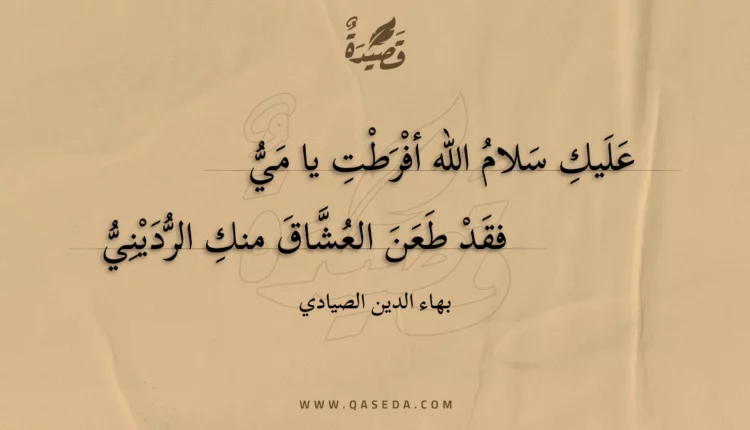 قَصِيدَةٌ
عَلَيكِ سَلامُ الله أفْرَطْتِ يا مَيُّ
فقَدْ طَعَنَ العُشَّاقَ منكِ الرُّدَيْنِيُّ
بهاء الدين الصيادي
WWW.QASEDA.COM